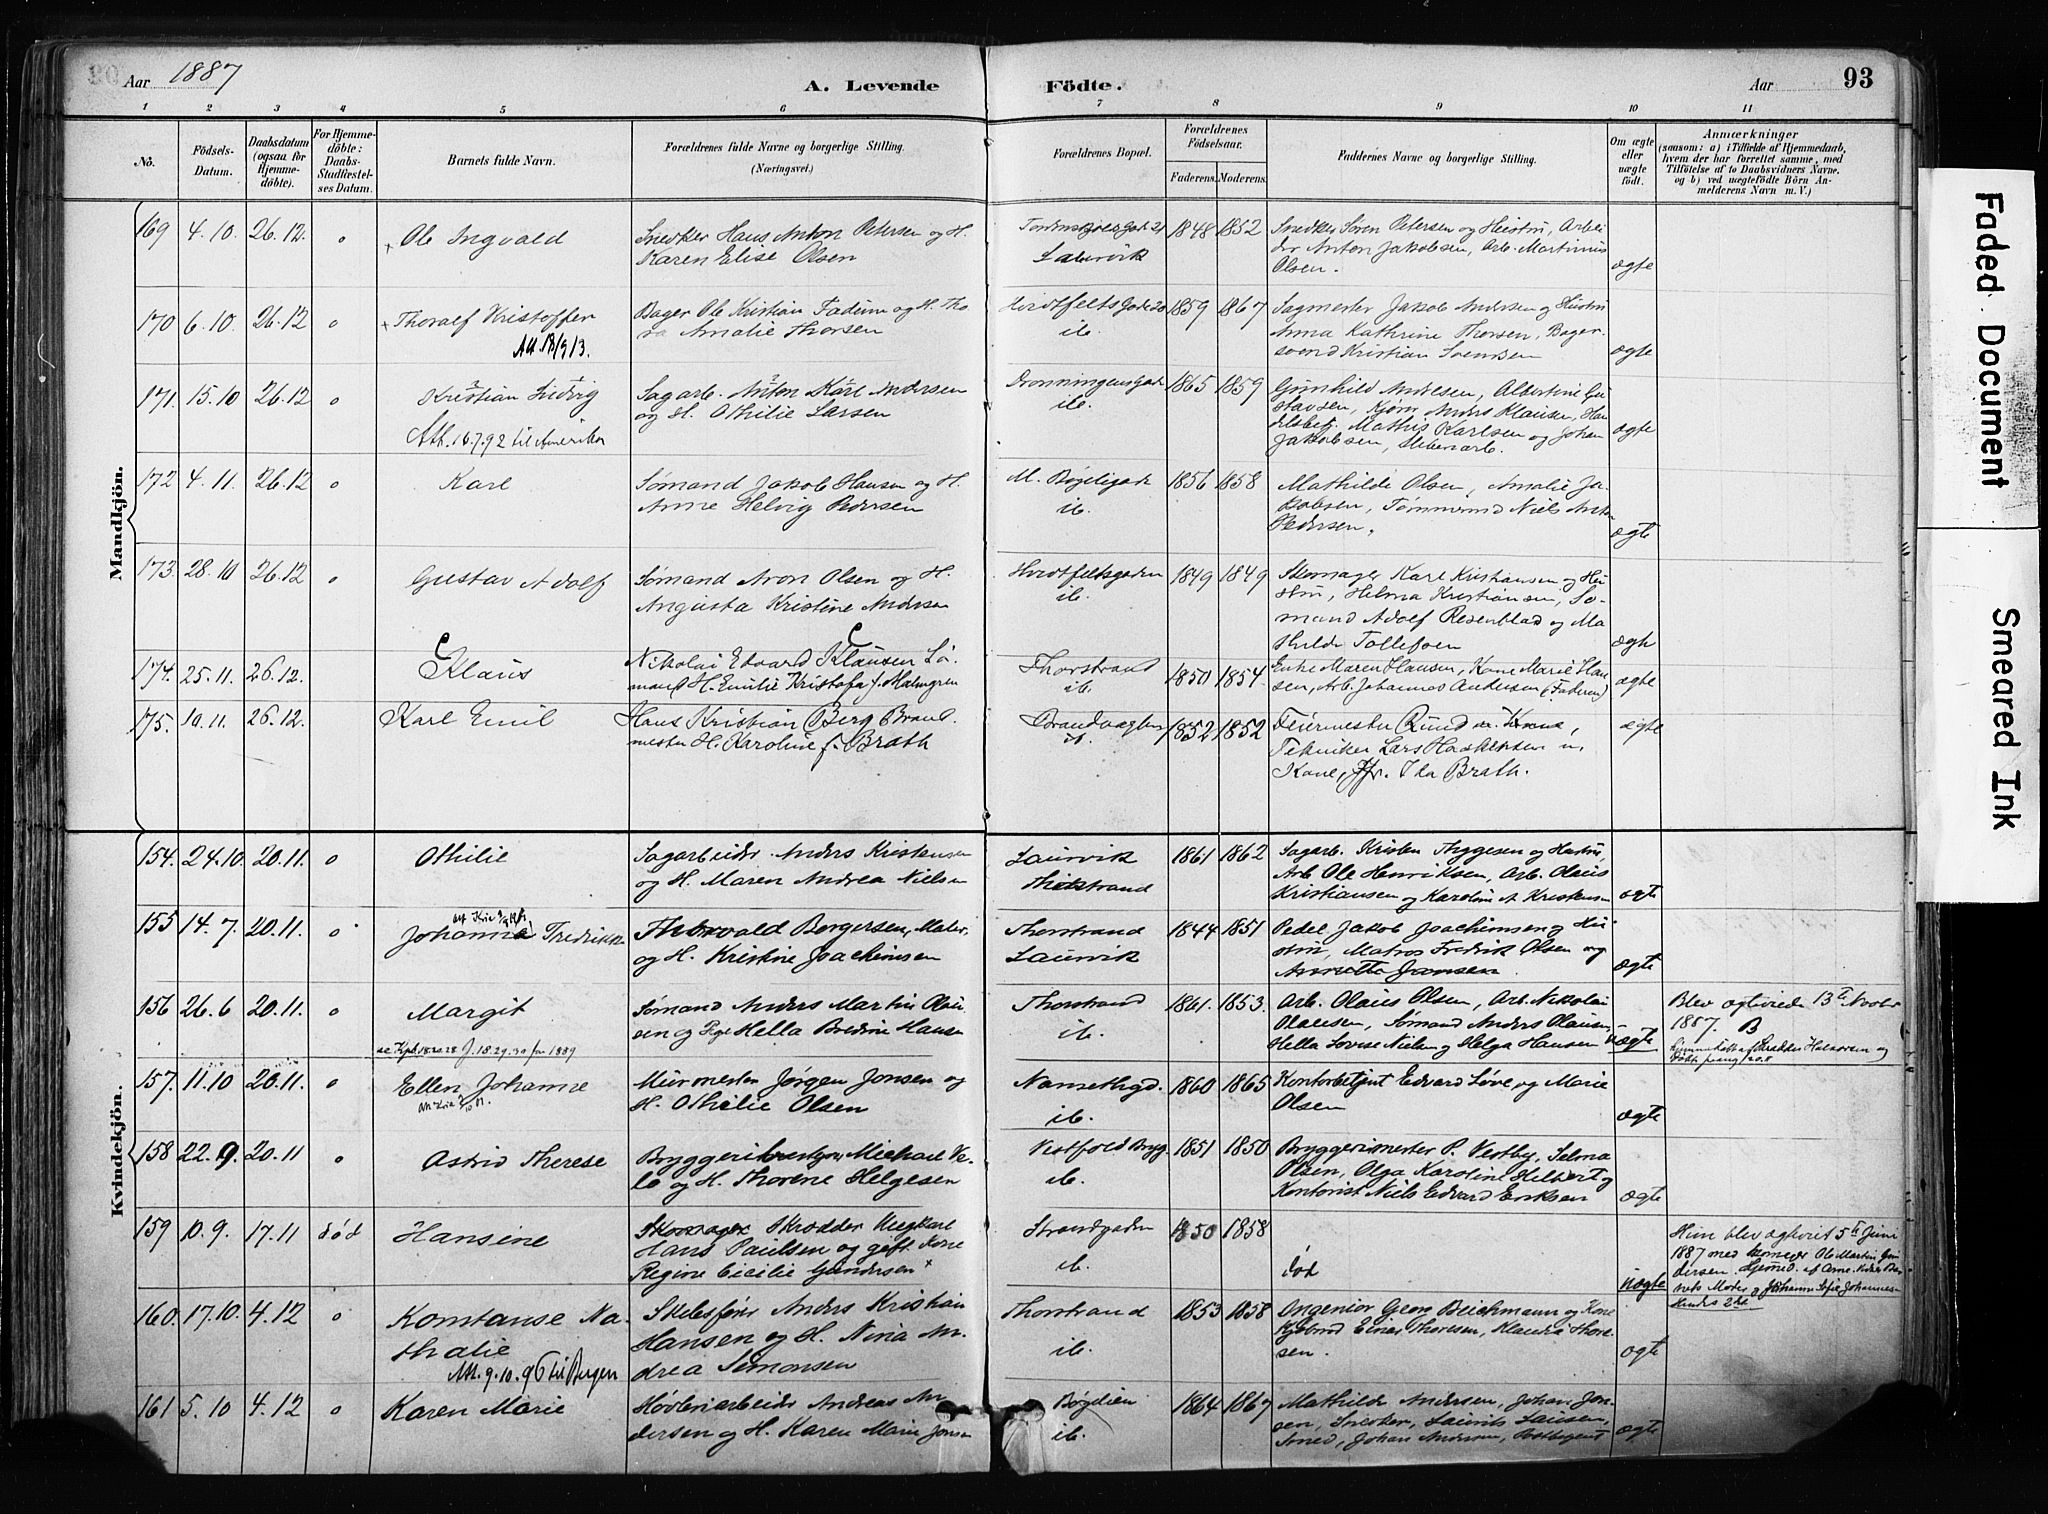 Aar 1887
A. Levende
Födte.
Aar
93
1 2 3 4 5 6 7 8 9 10 11
No.
Födsels-Datum.
Daabsdatum (ogsaa for Hjemmedöbte).
For Hjemmedöbte: Daabs-Stadfæstelses Datum.
Barnets fulde Navn.
Forældrenes fulde Navne og borgerlige Stilling.
(Næringsvei.)
Forældrenes Bopæl.
Forældrenes Födselsaar.
Faderens. Moderens.
Faddernes Navne og borgerlige Stilling.
Om ægte eller uægte födt.
Anmærkninger
(saasom: a) i Tilfælde af Hjemmedaab, hvem der har forrettet samme, med Tilföielse af to Daabsvidners Navne, og b) ved uægtefödte Börn Anmelderens Navn m. V.)
Mandkjön.
169 4.10. 26.12. o Ole Ingvald
Snedker Hans Anton Petersen og H.
Karen Elise Olsen
Laurvik
1848 1852
Snedker Sören Petersen og Hustru, Arbei
der Anton Jakobsen, Arb. Martinius
Olsen.
ægte
170 6.10. 26.12 o Thoralf Kristoffer
Att. 18/9 13.
Bager Ole Kristian Fadum og H. Tho
ra Amalie Thorsen
Hvidtfelts Gade 20
ib.
1859 1867
Sagmester Jakob Andersen og Hustru
Anna Kathrine Thorsen, Bager
svend Kristian Svendsen
ægte
171. 15.10 26.12 o Kristian Ludvig
Att. 16.7.92 til Amerika
Sagarb. Anton Karl Andersen
og H. Othilie Larsen
Dronningens Gade
ib.
1865 1859
Gunhild Andresen, Albertine Gu
stavsen, Kjörm. Anders Klausen, Han
delsbetj. Mathis Karlsen og Johan
Jakobsen, Stenarb.
ægte
172 4.11. 26.12 o Karl
Sømand Jakob Hansen og H.
Anne Helvig Pedersen
M. Bøgeligade
ib.
1856 1858
Mathilde Olsen, Amalie Ja
kobsen, Tømmermd Niels Anton
Pedersen.
ægte
173. 28.10 26.12 o Gustav Adolf
Sømand Aron Olsen og H.
Augusta Kristine Andersen
Hvidtfeltsgaden
ib.
1849 1849
Skomager Karl Kristiansen og Hu
stru, Helma Kristiansen, Sø-
mand Adolf Rosenblad og Ma
thilde Tollefsen
ægte
174. 25.11. 26.12. C Klaus
Nikolai Edvard Klausen Sø-
mand H. Emilie Kristofa f. Malmgren
Thorstrand
ib.
1850 1854.
Enke Maren Hansen, Kone Marie Han
sen, Arb. Johannes Andersen (Faderen)
ægte
175. 10.11. 26.12. Karl Emil
Hans Kristian Berg Brand.
mester H. Karoline f. Brath
Brandvagten
ib.
1852 1852
Feiermester Rund m. Kone,
Tekniker Lars Haakensen m.
Kone, Jfr. Ida Brath.
ægte
Kvindekjön.
154. 24.10. 20.11. o Othilie
Sagarbeider Anders Kristensen
og H. Maren Andrea Nielsen
Laurvik
Thorstrand
1861 1862
Sagarb. Kristen Thygesen og Hustru,
Arb. Ole Henriksen, Arb. Olaus
Kristiansen og Karoline A. Kristensen
ægte
155 14.7. 20.11. o Johanne Fredrikke
Thorvald Bergersen, Maler,
og H. Kristine Joachimsen
Thorstrand
Laurvik
1844 1851
Pedel Jakob Joachimsen og Hu
stru, Matros Fredrik Olsen og
Annette Jansen
ægte
156 26.6 20.11. o Margit
Sømand Anders Martin Olau
sen og Pige Hella Bredine Hansen
Thorstrand
ib.
1861. 1853.
Arb. Olaus Olsen, Arb. Nikolai
Olausen, Sømand Anders Olausen,
Hella Lovise Nielsen og Helga Hansen
uægte
Blev ægtviede 13de Novbr
1887. B
157. 11.10 20.11. o Ellen Johanne
Murmester Jørgen Jonsen og
H. Othilie Olsen
Nansethgd.
ib.
1860 1865
Kontorbetjent Edvard Løve, og Marie
Olsen
ægte
158 22.9. 20.11 o Astrid Therese
Bryggeribestyrer Michael Ve-
lo og H. Thorene Helgesen
Vestfold Bryg.
ib.
1851 1850
Bryggerimester P. Vestby, Selma
Olsen, Olga Karoline Helbert og
Kontorist Niels Edvard Eriksen
ægte
159 10.9. 17.11 død Hansine
Skomager Skrædder Ungkarl
Hans Paulsen og gift Kone
Regine Cicilie Gundersen +
Strandgaden
ib.
1850 1858
død
uægte
Hun blev ægtviet 5te Juni
1887 med Skomager Ole Martin Gun
dersen.
160 17.10. 4.12 o Konstanse Na-
thalie
Att. 9.10.96 til Bergen
Skibsfører Anders Kristian
Hansen og H. Nina An
drea Simonsen
Thorstrand
ib.
1853 1858
Ingeniør Georg Beichmann og Kone
Kjøbmd Einar Thoresen, Klaudia Thore-
sen.
ægte
161 5.10 4.12 o Karen Marie
Høvleriarbeider Andreas An
dersen og H. Karen Marie Jonsen
Bøgelien
ib.
1864 1867
Mathilde Andersen, Johan Jon-
sen, Snedker, Laurits Laursen,
Smed, Johan Andersen,
ægte
Faded Document
Smeared Ink